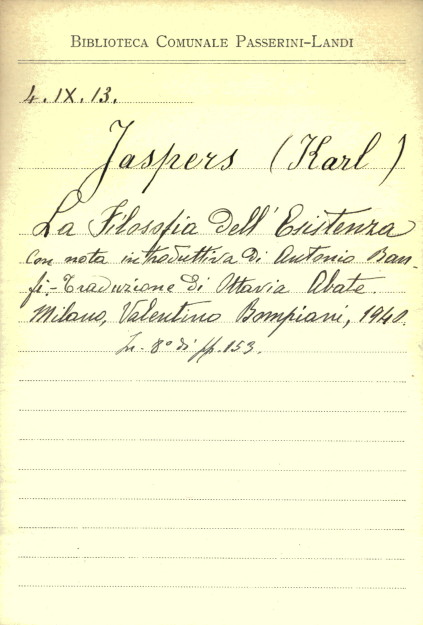 BIBLIOTECA COMUNALE PASSERINI-LANDI
4. IX. 13.
Jaspers (Karl)
La Filosofia dell'Esistenza
con nota introduttiva di Antonio Ban-
fi. - Traduzione di Ottavia Abate.
Milano, Valentino Bompiani, 1940.
In- 8° di pp. 153.